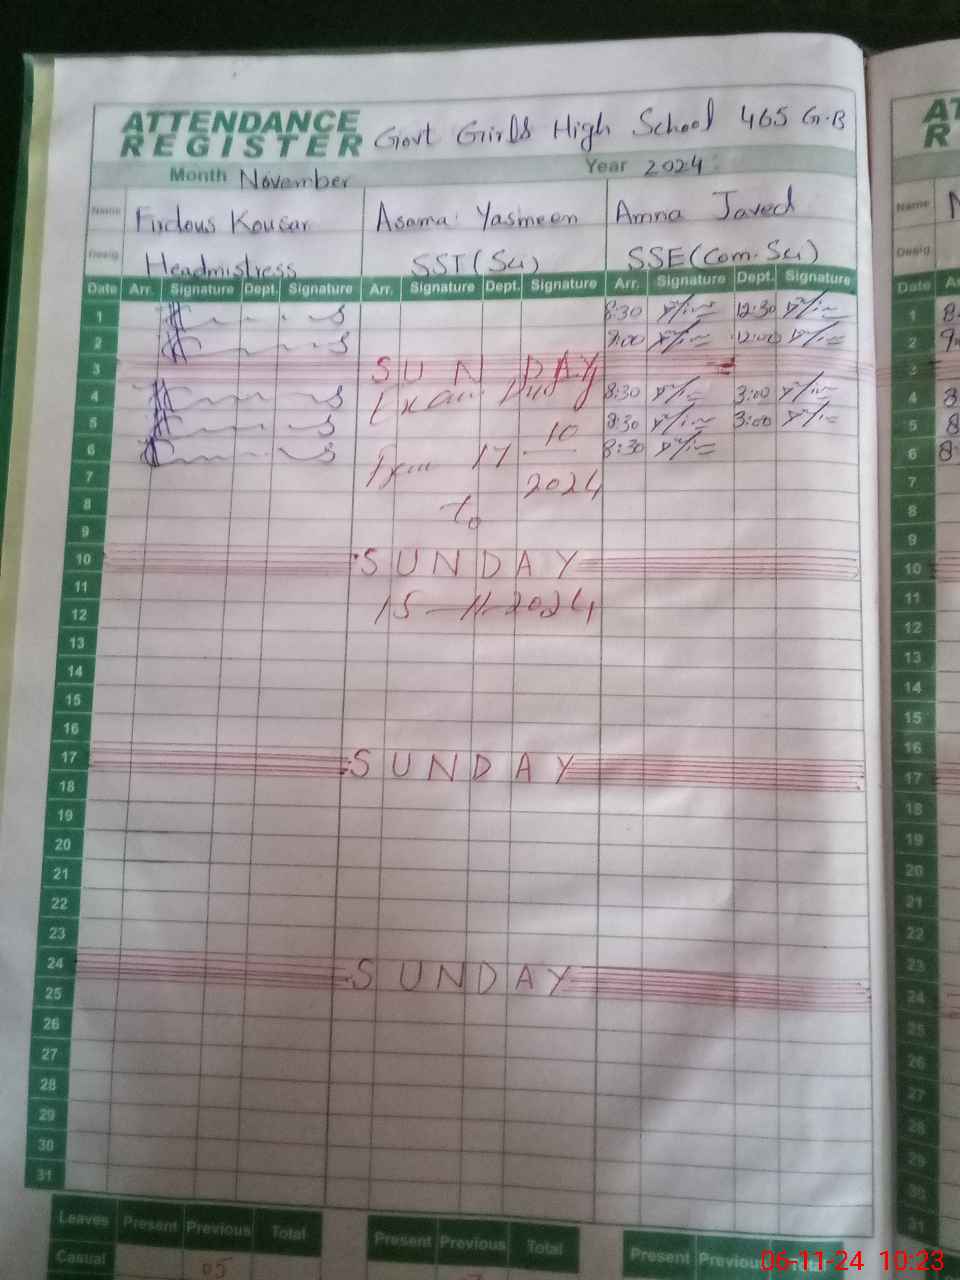 ATTENDANCE REGISTER Govt Girls High School 465 G.B
Month November Year 2024
Name Firdous Kousar Asama Yasmeen Amna Javed
Desig Headmistress SST (Sci) SSE (Com. Sci)
Date Arr. Signature Dept. Signature Arr. Signature Dept. Signature Arr. Signature Dept. Signature
1 8:30 12:30
2 9:00 12:00
3 SUNDAY
4 Exam Duty 8:30 3:00
5 8:30 3:00
6 17 10 8:30
7 2024
8 to
9
10 SUNDAY
11
12 15-11-2024
13
14
15
16
17 SUNDAY
18
19
20
21
22
23
24 SUNDAY
25
26
27
28
29
30
31
Leaves Present Previous Total Present Previous Total Present Previous
Casual 05
AT
R
Name
Desig
Date
1 8
2
3
4
5 8
6 8
7
8
9
10
11
12
13
14
15
16
17
18
19
20
21
22
23
24
25
26
27
28
29
30
31
06-11-24 10:23